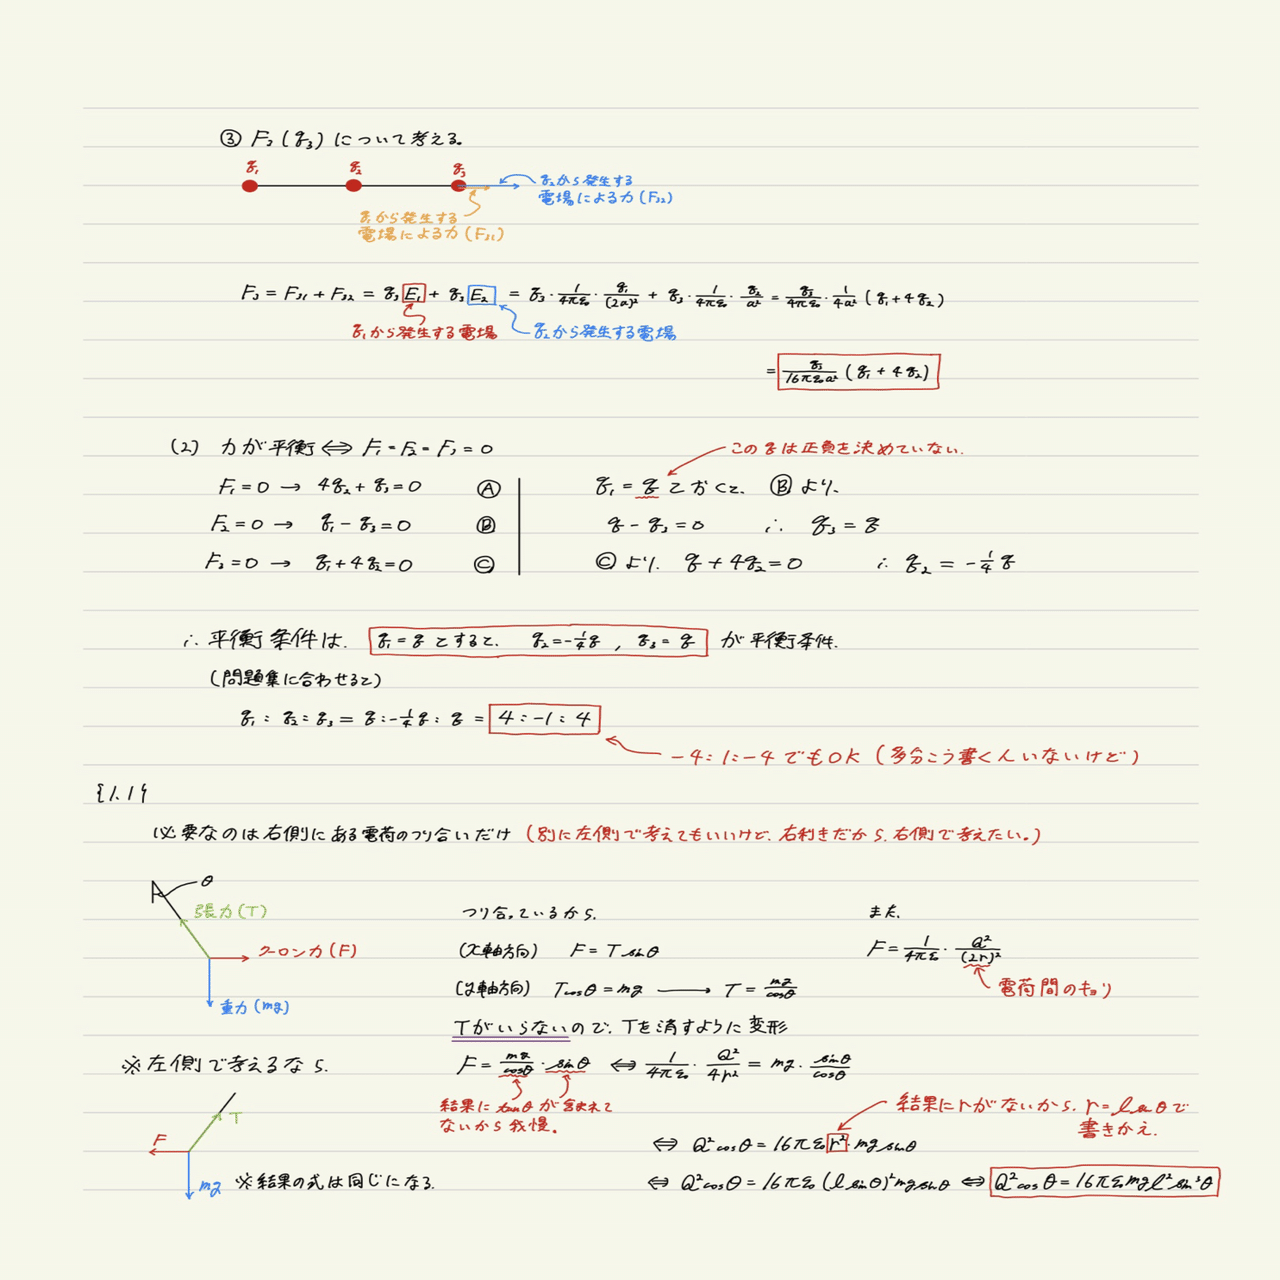 ③ F₃(q₃) について考える。
q₁ q₂ q₃
q₂から発生する
電場による力(F₃₂)
q₁から発生する
電場による力(F₃₁)
F₃ = F₃₁ + F₃₂ = q₃E₁ + q₃E₂ = q₃・1/4πε₀・q₁/(2a)² + q₃・1/4πε₀・q₂/a² = q₃/4πε₀・1/4a² (q₁+4q₂)
q₁から発生する電場 q₂から発生する電場
= q₃/16πε₀a² (q₁ + 4q₂)
(2) 力が平衡 ⇔ F₁ = F₂ = F₃ = 0
この q は正負を決めていない。
F₁=0 → 4q₂+q₃=0 Ⓐ
F₂=0 → q₁-q₃=0 Ⓑ
F₃=0 → q₁+4q₂=0 Ⓒ
q₁ = q とおくと、 Ⓑ より、
q - q₃ = 0 ∴ q₃ = q
Ⓒ より、 q + 4q₂ = 0 ∴ q₂ = -1/4 q
∴ 平衡条件は、 q₁ = q とすると、 q₂ = -1/4q , q₃ = q が平衡条件。
(問題集に合わせると)
q₁ : q₂ : q₃ = q : -1/4q : q = 4 : -1 : 4
-4 : 1 : -4 でもOK (多分こう書く人いないけど)
{1.1}
必要なのは右側にある電荷のつり合いだけ (別に左側で考えてもいいけど、右利きだから、右側で考えたい。)
θ
張力(T)
クーロン力(F)
重力(mg)
つり合っているから、
(x軸方向) F = T sinθ
(y軸方向) Tcosθ = mg → T = mg/cosθ
また、
F = 1/4πε₀・Q²/(2r)²
電荷間のキョリ
Tがいらないので、Tを消すように変形
F = mg/cosθ・sinθ ⇔ 1/4πε₀・Q²/4r² = mg・sinθ/cosθ
結果に tanθ が含まれて
ないから我慢。
結果にrがないから、r = l sinθ で
書きかえ。
⇔ Q²cosθ = 16πε₀r²・mg sinθ
⇔ Q²cosθ = 16πε₀(l sinθ)²mg sinθ ⇔ Q²cosθ = 16πε₀mgl²sin³θ
※左側で考えるなら、
T
F
mg
※結果の式は同じになる。